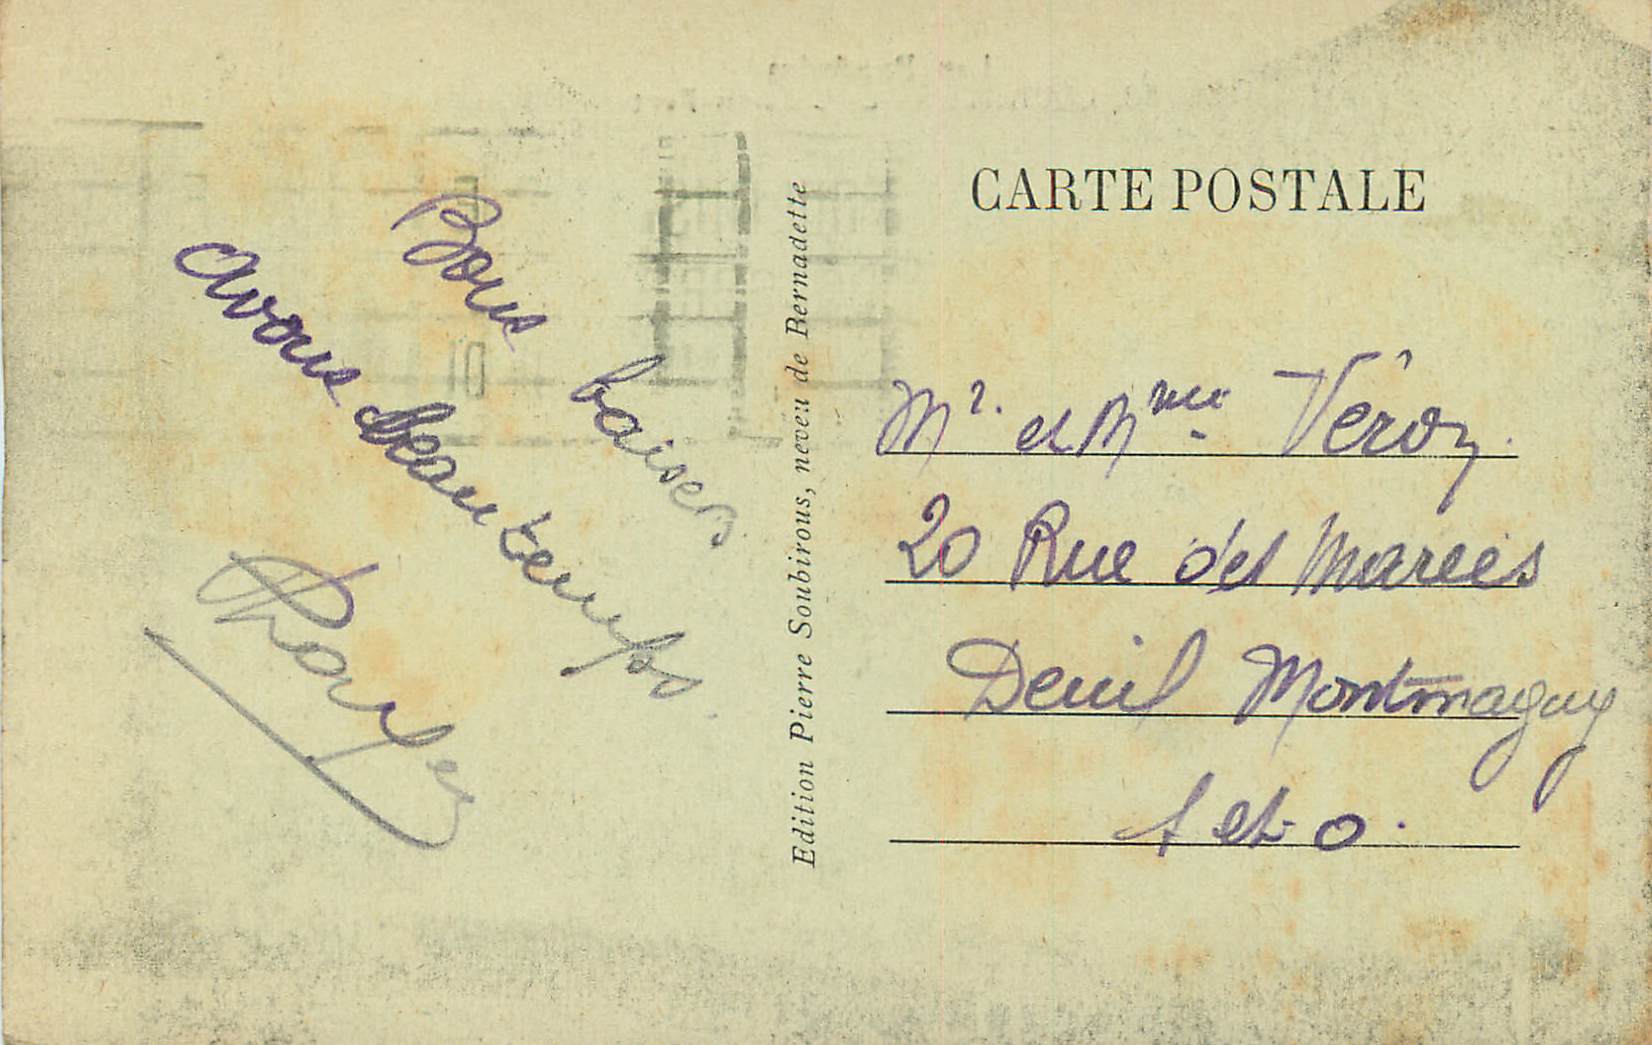 CARTE POSTALE
Bons baisers
avons beau temps
Edition Pierre Soubirous, neveu de Bernadette
Mr. et Mme Véron.
20 Rue des Marees
Deuil Montmagny
S et O.